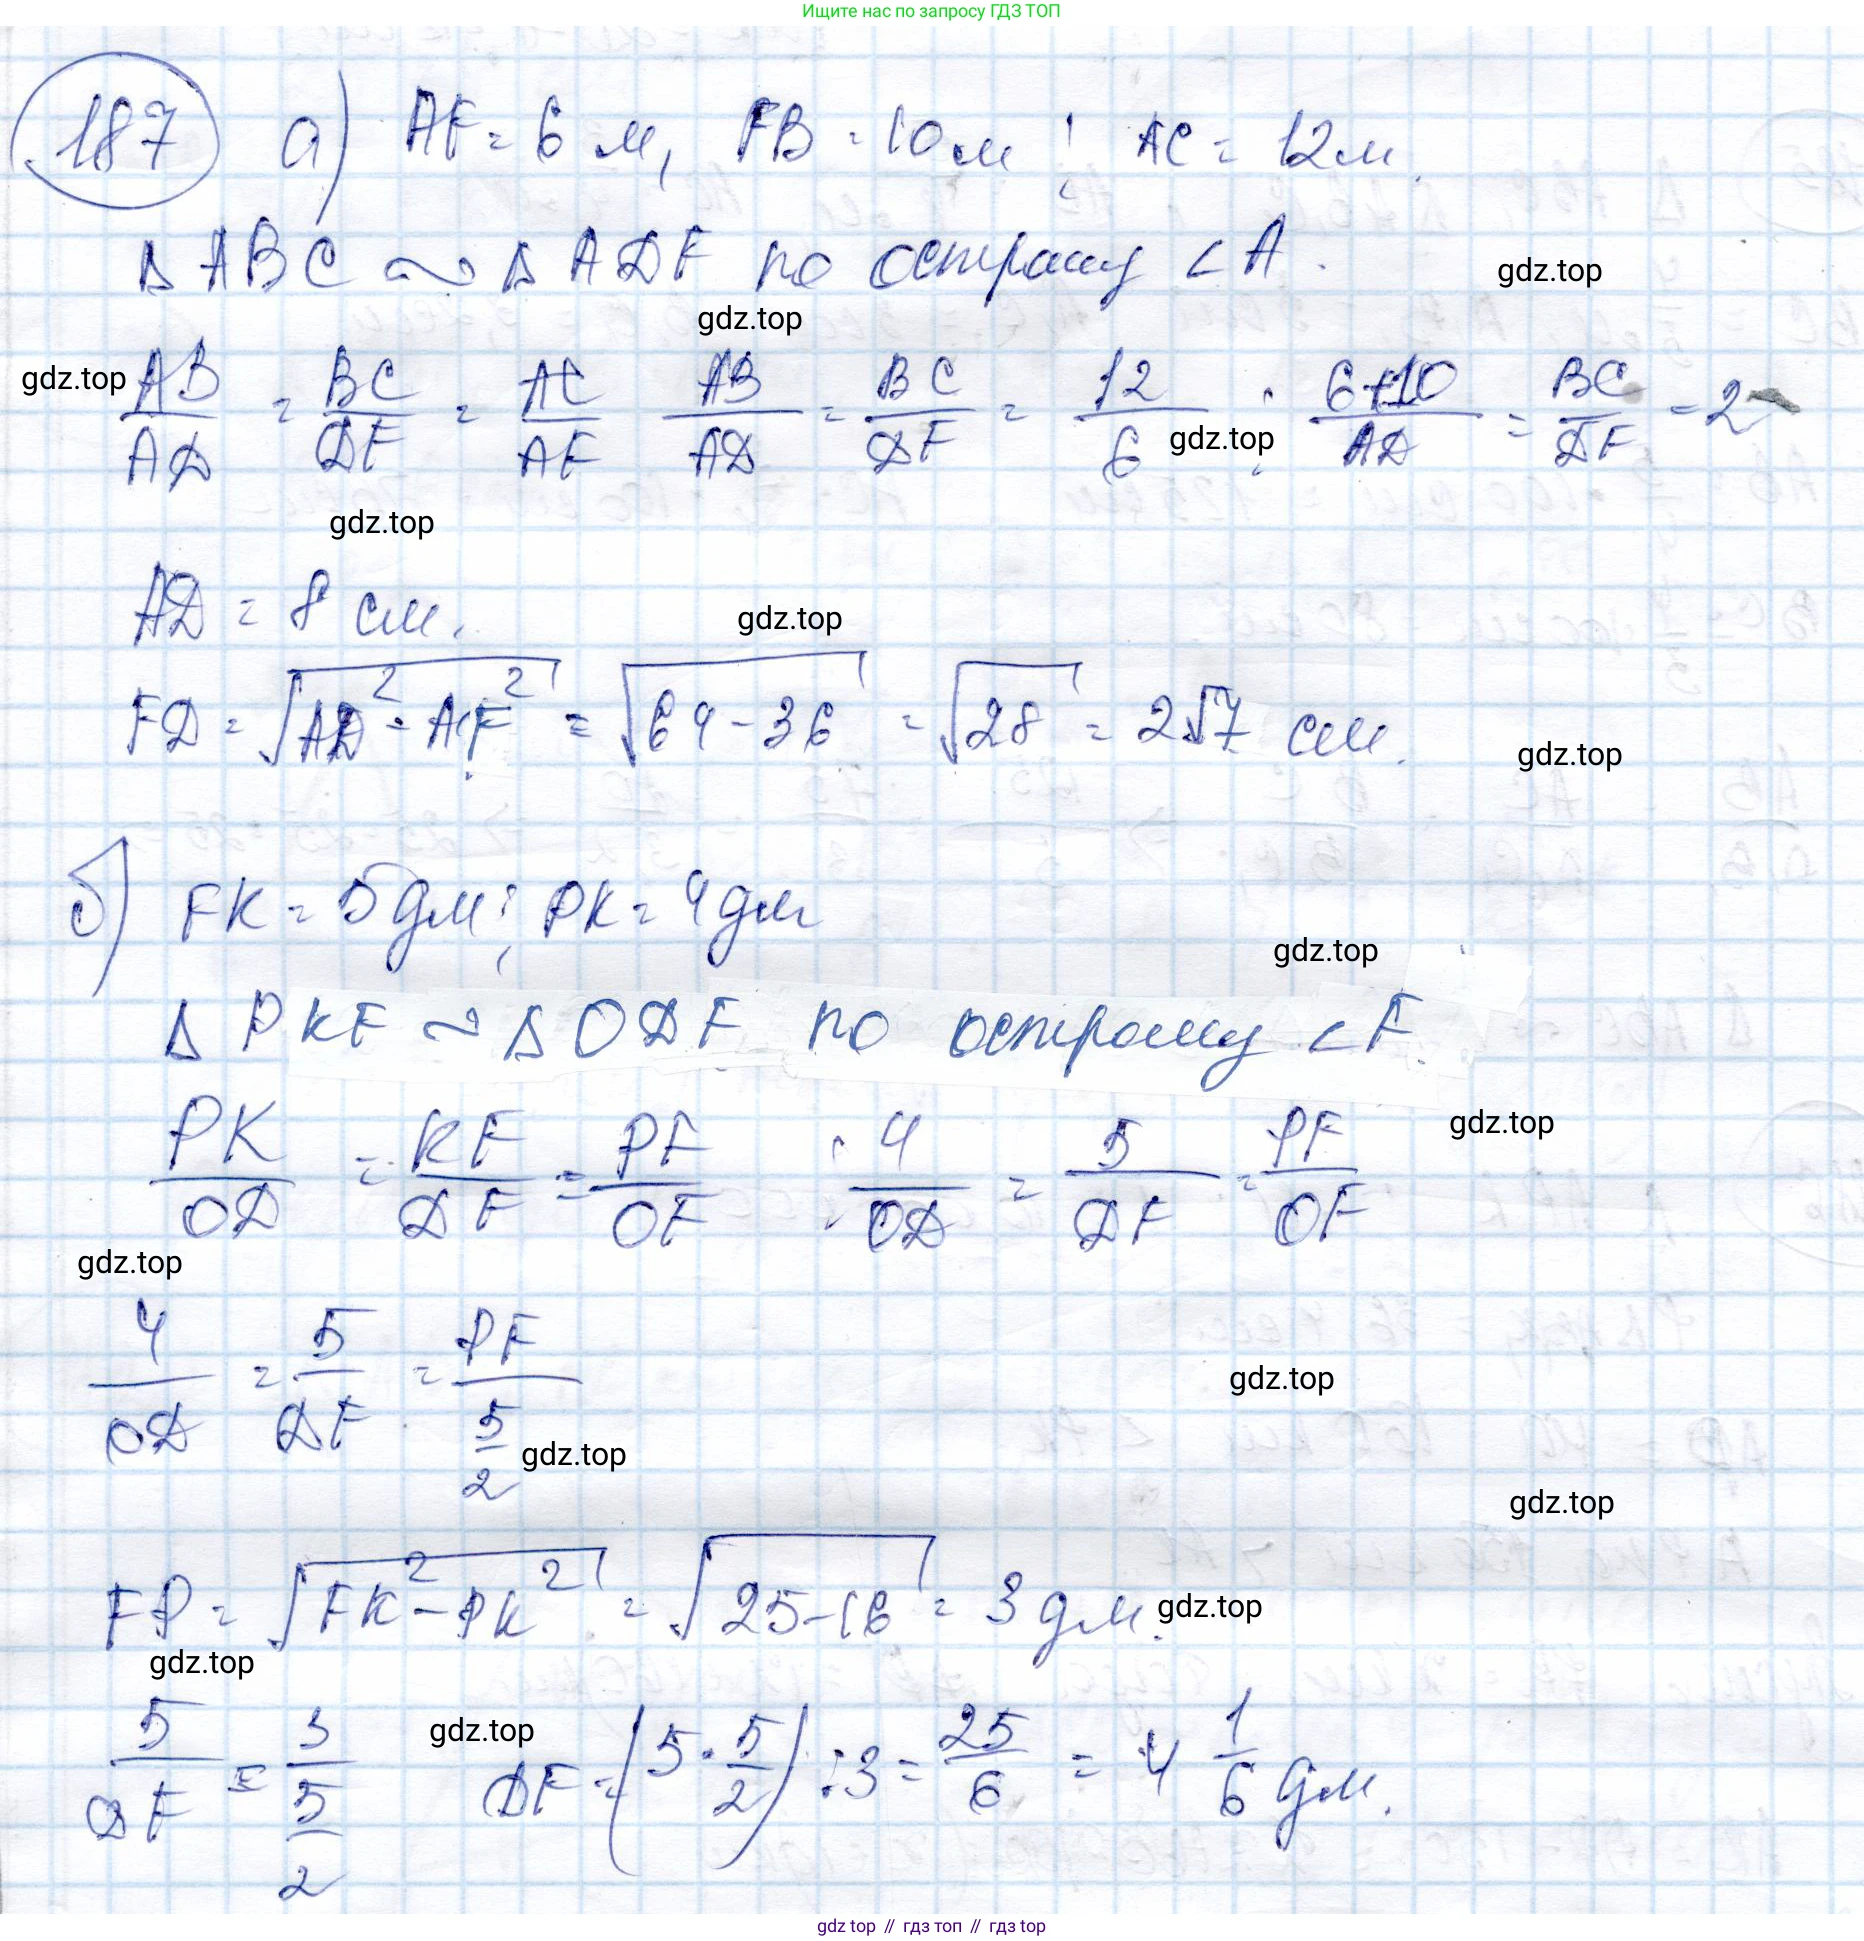 Ищите нас по запросу ГДЗ ТОП
187 а) AF = 6 м, FB = 10 м; AC = 12 м.
Δ ABC ~ Δ ADF по острому ∠A.
gdz.top
gdz.top
gdz.top
AB/AD = BC/DF = AC/AF AB/AD = BC/DF = 12/6 ; 6+10/AD = BC/DF = 2
gdz.top
gdz.top
AD = 8 см.
gdz.top
FD = √(AD² - AF²) = √(64 - 36) = √28 = 2√7 см.
gdz.top
б) FK = 5 дм; PK = 4 дм
gdz.top
Δ PKF ~ Δ ODF по острому ∠F.
PK/OD = KF/DF = PF/OF ; 4/OD = 5/DF = PF/OF
gdz.top
gdz.top
4/OD = 5/DF = PF/(5/2)
gdz.top
gdz.top
gdz.top
FP = √(FK² - PK²) = √(25 - 16) = 3 дм.
gdz.top
gdz.top
5/DF = 3/(5/2) DF = (5 · 5/2) : 3 = 25/6 = 4 1/6 дм.
gdz.top
gdz top // гдз топ // гдз top